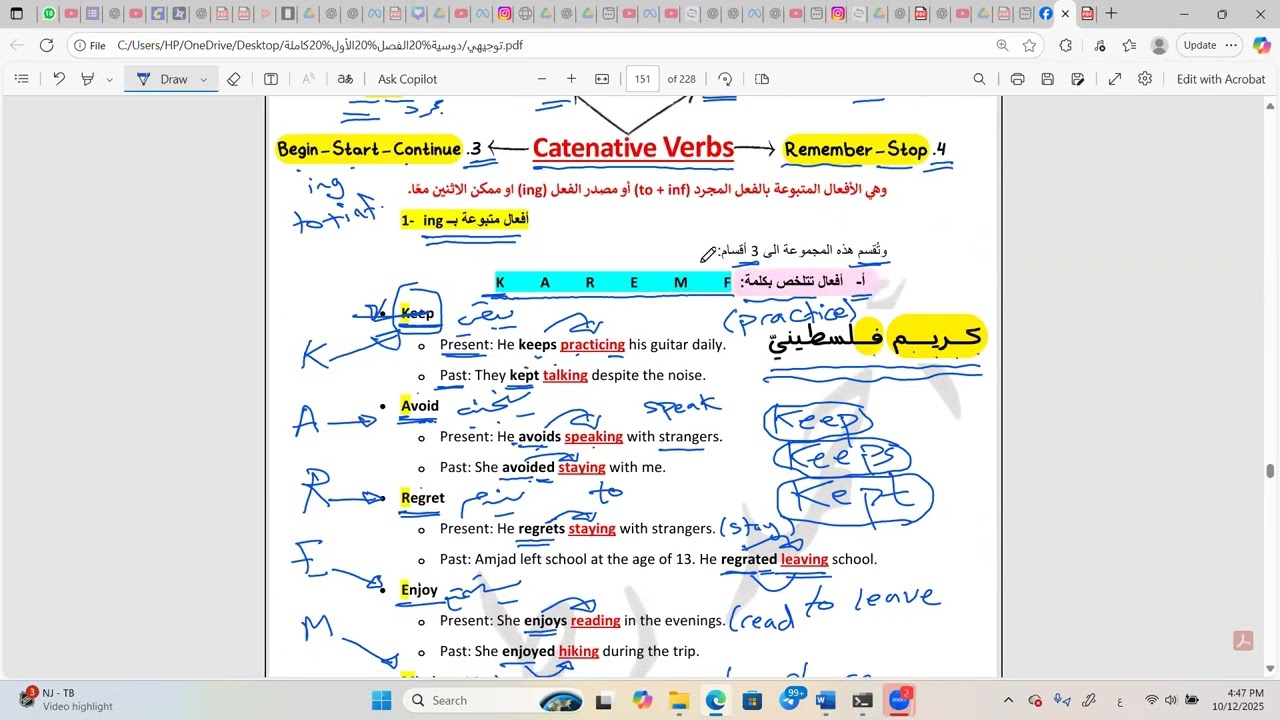 File C:/Users/HP/OneDrive/Desktop/توجيهي/دوسية%20الفصل%20الأول%20كاملة.pdf
Update
Draw
Ask Copilot
151 of 228
Edit with Acrobat
مجرد
Begin – Start – Continue .3 Catenative Verbs Remember – Stop .4
ing
to+inf.
وهي الأفعال المتبوعة بالفعل المجرد (to + inf) أو مصدر الفعل (ing) او ممكن الاثنين معًا.
1- أفعال متبوعة بـ ing
وتُقسم هذه المجموعة الى 3 أقسام:
أ- أفعال تتلخص بكلمة: K A R E M F
• Keep يبقى (practice)
كـريـم فـلسطينيّ
K
o Present: He keeps practicing his guitar daily.
o Past: They kept talking despite the noise.
A • Avoid يتجنب speak Keep
o Present: He avoids speaking with strangers.
Keeps
o Past: She avoided staying with me.
R • Regret يندم to Kept
o Present: He regrets staying with strangers. (stay)
o Past: Amjad left school at the age of 13. He regrated leaving school.
E • Enjoy يستمتع to leave
o Present: She enjoys reading in the evenings. (read
M
o Past: She enjoyed hiking during the trip.
3
NJ - TB
Video highlight
Search
99+
2
ع
4:47 PM
10/12/2025